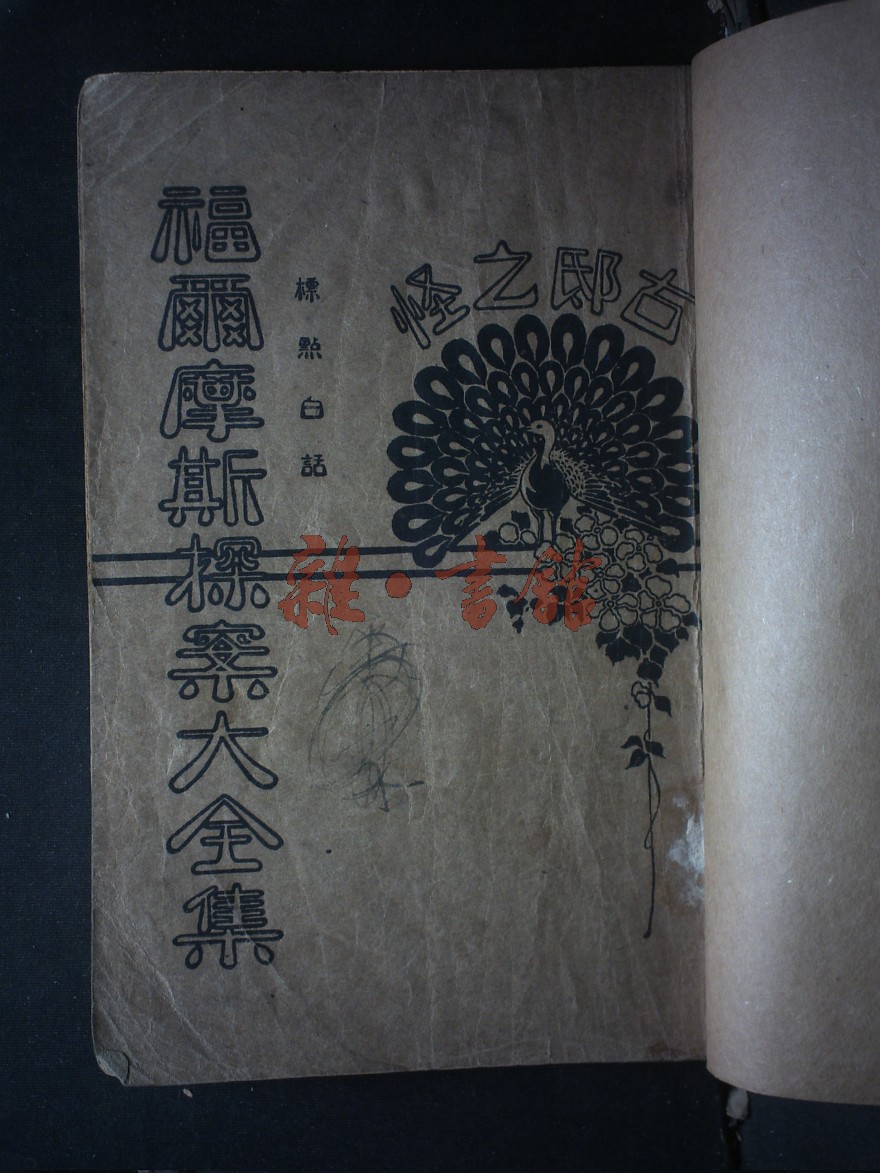 古邸之怪
標點白話
福爾摩斯探案大全集
雜·書館